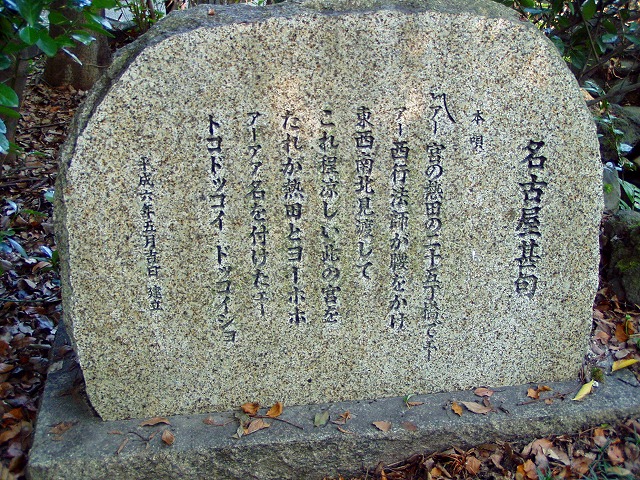 名古屋甚句
本唄
〽アー宮の熱田の二十五丁橋でエー
アー西行法師が腰をかけ
東西南北見渡して
これ程涼しい此の宮を
たれが熱田とヨーホホ
アーアア名を付けたエー
トコドッコイ ドッコイショ
平成六年五月吉日 建立